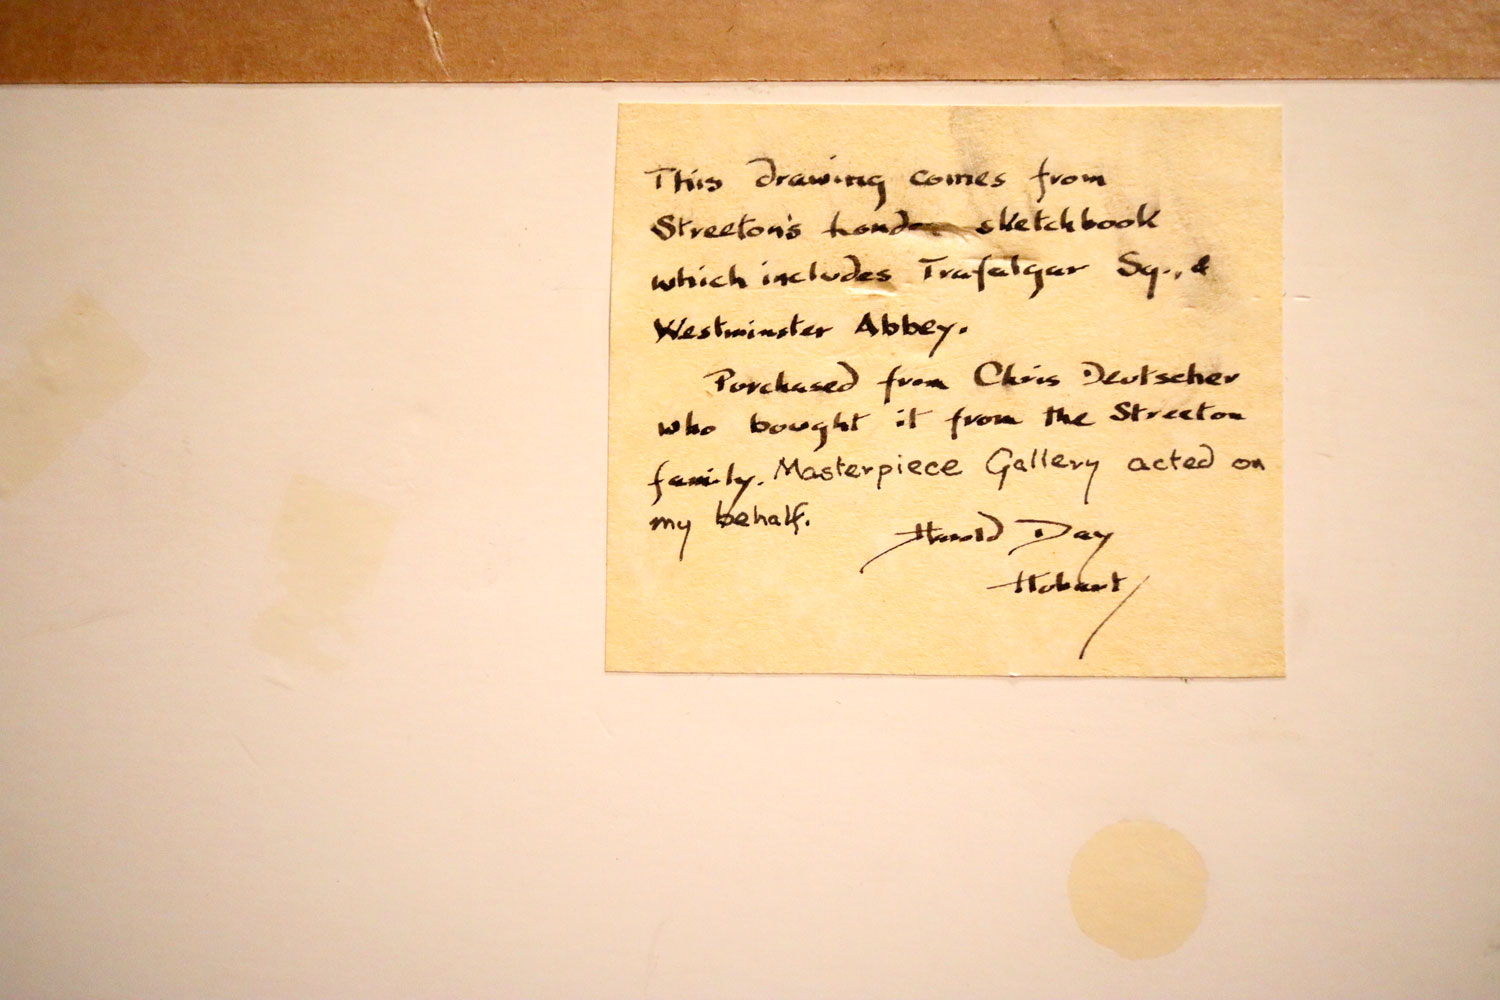 This drawing comes from
Streeton's London sketchbook
which includes Trafalgar Sq., &
Westminster Abbey.
Purchased from Chris Deutscher
who bought it from the Streeton
family. Masterpiece Gallery acted on
my behalf.
Harold Day
Hobart